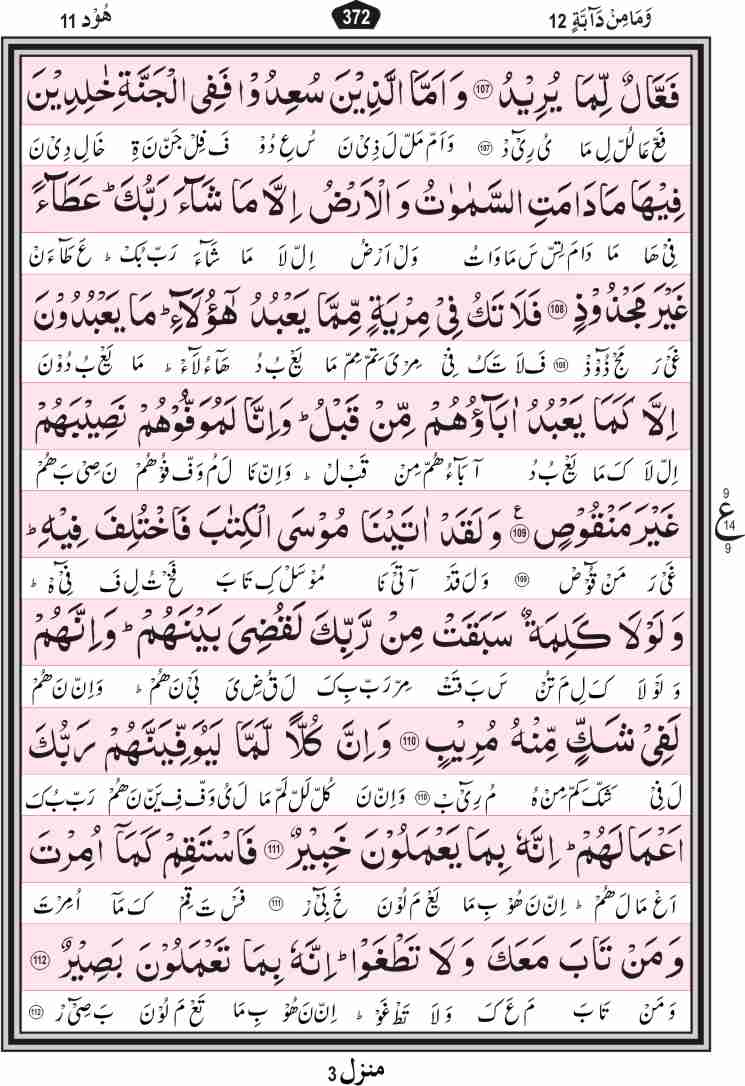 وَمَا مِنْ دَآبَّةٍ 12
372
هُوْد 11
فَعَّالٌ لِّمَا يُرِيْدُ ۝107 وَاَمَّا الَّذِيْنَ سُعِدُوْا فَفِى الْجَنَّةِ خٰلِدِيْنَ
فَعْ عَالُلْ لِ مَا يُ رِىْٓ دْ ۝107 وَاَمْ مَلْ لَ ذِىْ نَ سُ عِ دُوْ فَ فِلْ جَنْ نَ ةِ خَالِ دِىْ نَ
فِيْهَا مَا دَامَتِ السَّمٰوٰتُ وَالْاَرْضُ اِلَّا مَا شَآءَ رَبُّكَ ؕ عَطَآءً
فِىْ هَا مَا دَامَ تِسْ سَ مَا وَاتُ وَلْ اَرْضُ اِلْ لَا مَا شَآءَ رَبْ بُكْ ؕ عَ طَآءَنْ
غَيْرَ مَجْذُوْذٍ ۝108 فَلَا تَكُ فِىْ مِرْيَةٍ مِّمَّا يَعْبُدُ هٰٓؤُلَآءِ ؕ مَا يَعْبُدُوْنَ
غَىْ رَ مَجْ ذُوْٓذْ ۝108 فَ لَا تَ كُ فِىْ مِرْ ىَ تِمْ مِمْ مَا يَعْ بُ دُ هَآءُ لَآءْ ؕ مَا يَعْ بُ دُوْ نَ
اِلَّا كَمَا يَعْبُدُ اٰبَآؤُهُمْ مِّنْ قَبْلُ ؕ وَاِنَّا لَمُوَفُّوْهُمْ نَصِيْبَهُمْ
اِلْ لَا كَ مَا يَعْ بُ دُ آ بَآءُ هُمْ مِنْ قَبْ لْ ؕ وَاِنْ نَا لَ مُ وَفْ فُوْ هُمْ نَ صِىْ بَ هُمْ
غَيْرَ مَنْقُوْصٍ ۝109 ع وَلَقَدْ اٰتَيْنَا مُوْسَى الْكِتٰبَ فَاخْتُلِفَ فِيْهِ ؕ
غَىْ رَ مَنْ قُوْٓصْ ۝109 وَ لَ قَدْ آتَىْ نَا مُوْ سَلْ كِ تَا بَ فَخْ تُ لِ فَ فِىْٓ هْ ؕ
9 ع 14 9
وَلَوْلَا كَلِمَةٌ سَبَقَتْ مِنْ رَّبِّكَ لَقُضِىَ بَيْنَهُمْ ؕ وَاِنَّهُمْ
وَ لَوْ لَا كَ لِ مَ تُنْ سَ بَ قَتْ مِرْ رَبْ بِ كَ لَ قُ ضِ ىَ بَىْ نَ هُمْ ؕ وَاِنْ نَ هُمْ
لَفِىْ شَكٍّ مِّنْهُ مُرِيْبٍ ۝110 وَاِنَّ كُلًّا لَّمَّا لَيُوَفِّيَنَّهُمْ رَبُّكَ
لَ فِىْ شَكْ كِمْ مِنْ هُ مُ رِىْٓ بْ ۝110 وَاِنْ نَ كُلْ لَلْ لَمْ مَا لَ ىُ وَفْ فِ يَنْ نَ هُمْ رَبْ بُ كَ
اَعْمَالَهُمْ ؕ اِنَّهٗ بِمَا يَعْمَلُوْنَ خَبِيْرٌ ۝111 فَاسْتَقِمْ كَمَآ اُمِرْتَ
اَعْ مَا لَ هُمْ ؕ اِنْ نَ هُوْ بِ مَا يَعْ مَ لُوْنَ خَ بِىْٓ رْ ۝111 فَسْ تَ قِمْ كَ مَآ اُمِرْ تَ
وَمَنْ تَابَ مَعَكَ وَلَا تَطْغَوْا ؕ اِنَّهٗ بِمَا تَعْمَلُوْنَ بَصِيْرٌ ۝112
وَ مَنْ تَا بَ مَ عَ كَ وَ لَا تَطْ غَوْ ؕ اِنْ نَ هُوْ بِ مَا تَعْ مَ لُوْنَ بَ صِىْٓ رْ ۝112
منزل 3